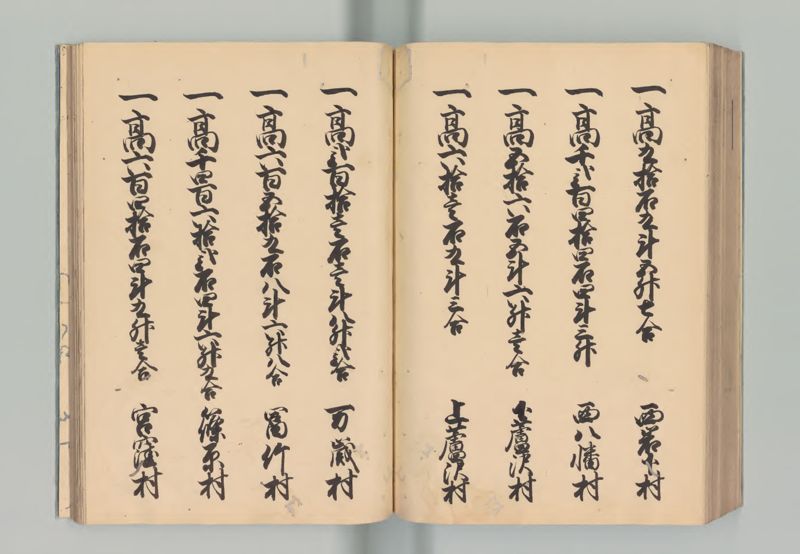 一高九拾石九斗五升七合 西岩下村
一高千弐百四拾四石四斗三升 西八幡村
一高五拾六石五斗六升壱合 下芦沢村
一高六拾壱石九斗三合 上芦沢村
一高弐百拾壱石壱斗八升弐合 万歳村
一高六百五拾九石八斗六升八合 冨竹村
一高千四百六拾弐石四斗六升九合 篠原村
一高六百四拾石四斗九升壱合 宮窪村